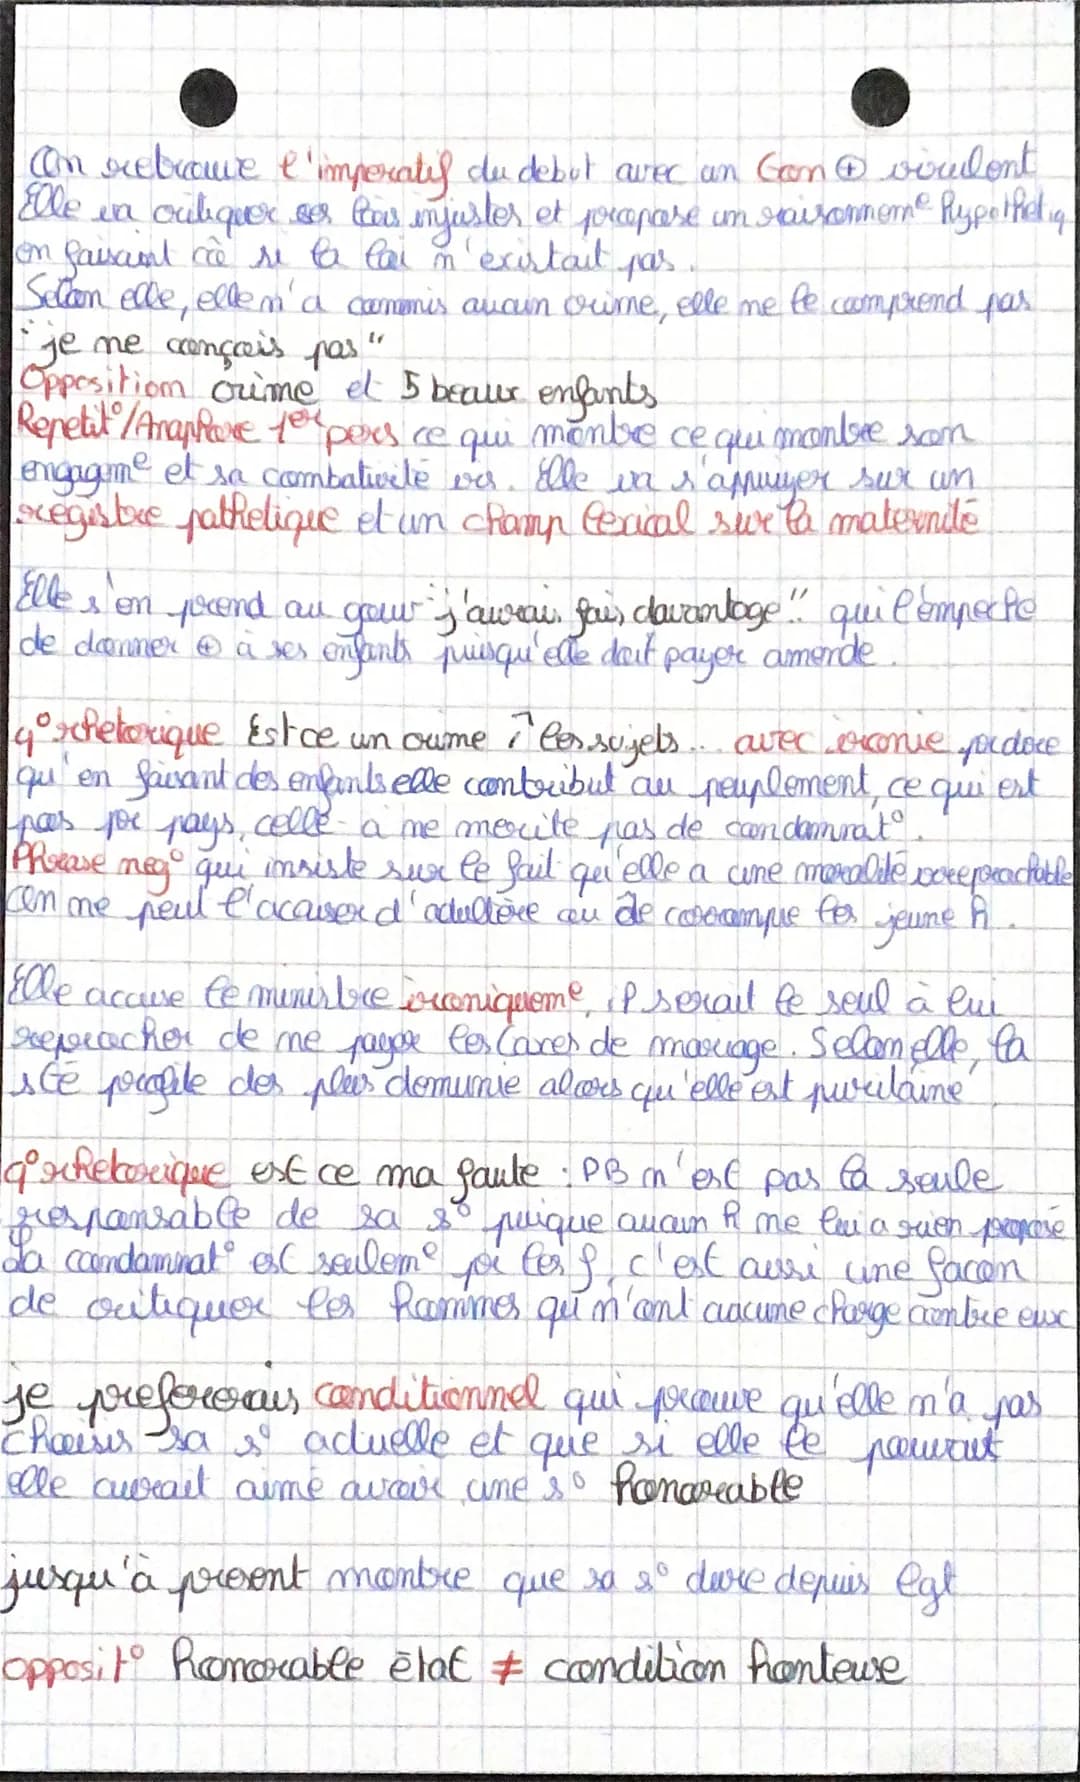 On retrouve l'imperatif du debut avec un ton ⊕ virulent
Elle va critiquer ses lois injustes et propose un raisonnemᵉ hypothetiq
en faisant cô si la loi n'existait pas.
Selon elle, elle n'a commis aucun crime, elle ne le comprend pas
"je ne conçois pas"
Opposition crime et 5 beaux enfants
Repetit°/Anaphore 1ere pers ce qui montre ce qui montre son
engagmᵉ et sa combativité. Elle va s'appuyer sur un
registre pathetique et un champ lexical sur la maternité
Elle s'en prend au gouv "j'aurai fais davantage" qui l'empeche
de donner ⊕ à ses enfants puisqu'elle doit payer amende.
q° rhetorique Est ce un crime ... les sujets... avec ironie
qu'en faisant des enfants elle contribut au peuplement, ce qui est
pas pr pays, celle-a ne merite pas de condamnat°.
Phrase neg° qui insiste sur le fait qu'elle a une moralité irreprochable
on ne peut l'acuser d'adultère ou de corrompre les jeune h.
Elle accuse le ministre ironiquemᵉ, il serait le seul à lui
reprocher de ne payer les taxes de mariage. Selon elle, la
sté profite des plus demunie alors qu'elle est puritaine
q° rhetorique est ce ma faute : PB n'est pas la seule
responsable de sa s° puique aucun h ne lui a rien proposé
La condamnat° est seulemᵉ pr les f, c'est aussi une façon
de critiquer les hommes qui n'ont aucune charge contre eux
je prefererais conditionnel qui prouve qu'elle n'a pas
choisis sa s° actuelle et que si elle le pouvait
elle aurait aimé avoir une s° honorable
jusqu'à present montre que sa s° dure depuis lgt
opposit° Honorable êtat ≠ condition honteuse